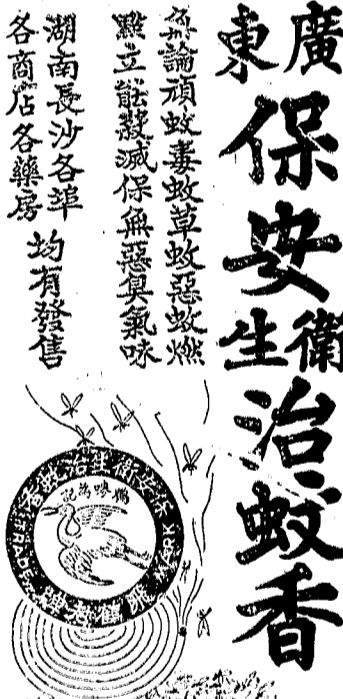 廣東保安衛生治蚊香
無論頑蚊毒蚊草蚊惡蚊燃
點立能殺滅保無惡臭氣味
湖南長沙各埠
各商店各藥房
均有發售
嘜為記
保安衛生治蚊香
TRADE